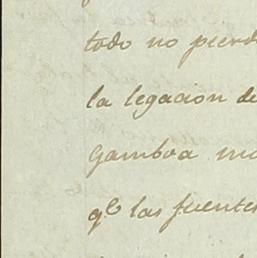 todo no pierd
la legacion de
Gamboa ma
q.e las fuentes